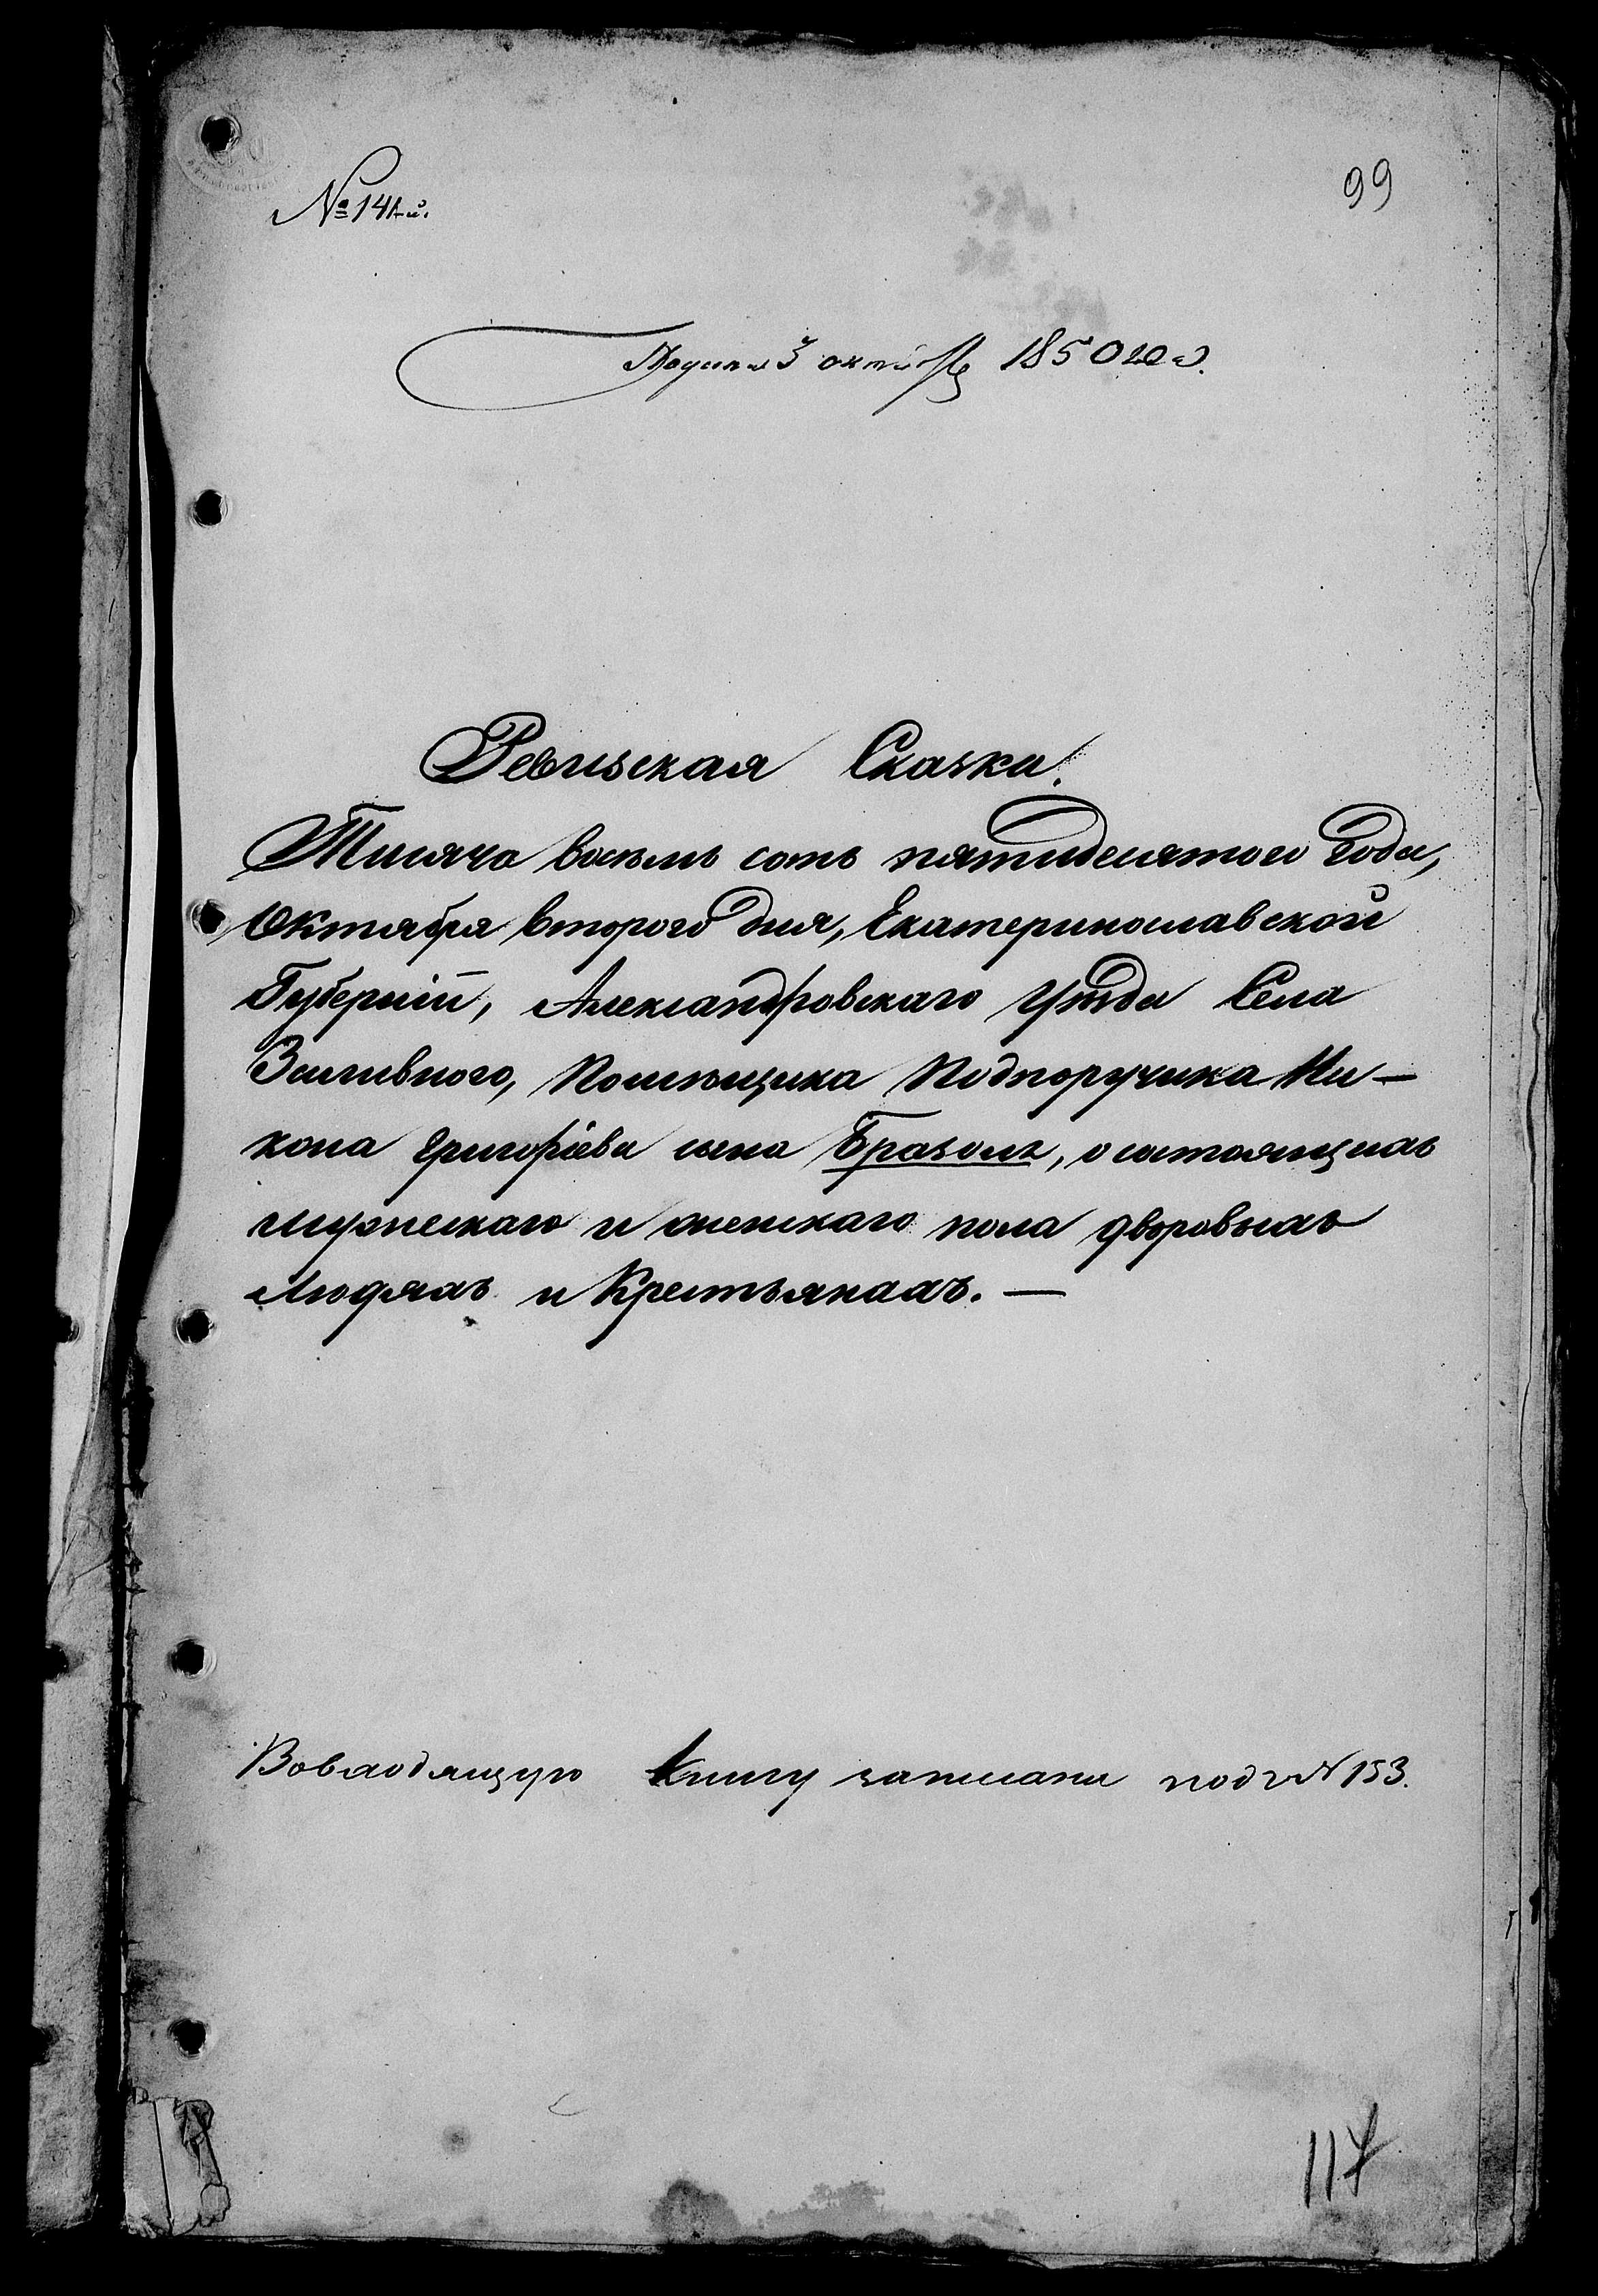 № 141-й.
99
Подана 3 октября 1850 года.
Ревизская Сказка.
Тысяча восемь сотъ пятидесятого года,
Октября второго дня, Екатеринославской
Губерніи, Александровскаго уѣзда Села
Заливного, Помѣщика Подпоручика Ни-
кона Григорьева сына Бразоль, о состоящихъ
мужескаго и женскаго пола дворовыхъ
Людяхъ и Крестьянахъ. —
Вовходящую Книгу записана подъ № 153.
117